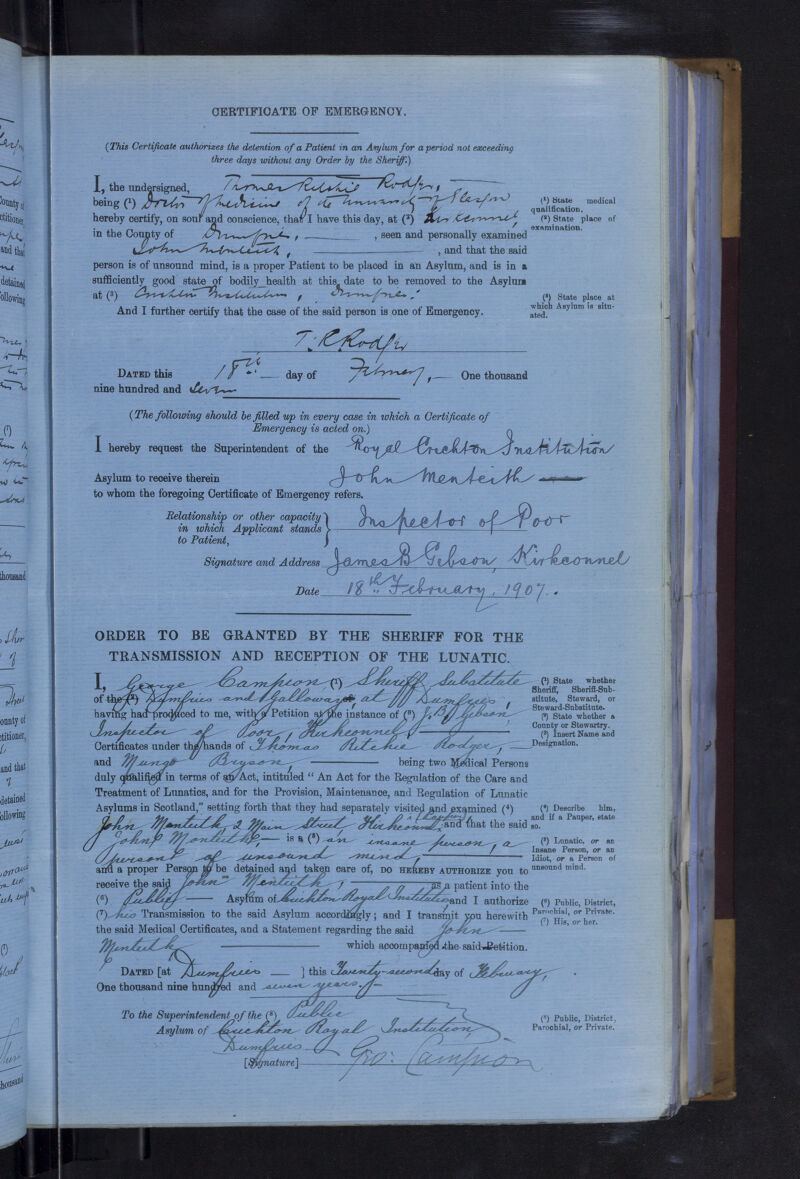 CERTIFICATE OF EMERGENCY.
(This Certificate authorizes the detention of a Patient in an Asylum for a period not exceeding
three days without any Order by the Sheriff.)
I, the undersigned, Thomas Ritchie Rodger,
being in (¹) Doctor of Medicine of the University of Glasgow
hereby certify, on soul and conscience, that I have this day, at (²) Kirkconnel,
in the County of Dumfries, , seen and personally examined
John Menteith, , and that the said
person is of unsound mind, is a proper Patient to be placed in an Asylum, and is in a
sufficiently good state of bodily health at this date to be removed to the Asylum
at (³) Crichton Institution, Dumfries.
And I further certify that the case of the said person is one of Emergency.
(¹) State medical
qualification.
(²) State place of
examination.
(³) State place at
which Asylum is situ-
ated.
T. R. Rodger
DATED this 18th day of February, One thousand
nine hundred and seven
(The following should be filled up in every case in which a Certificate of
Emergency is acted on.)
I hereby request the Superintendent of the Royal Crichton Institution
Asylum to receive therein John Menteith
to whom the foregoing Certificate of Emergency refers.
Relationship or other capacity
in which Applicant stands
to Patient,
Inspector of Poor
Signature and Address James B Gibson, Kirkconnel
Date 18th February, 1907.
ORDER TO BE GRANTED BY THE SHERIFF FOR THE
TRANSMISSION AND RECEPTION OF THE LUNATIC.
I, George Campion (¹) Sheriff Substitute
of the (²) Dumfries and Galloway at Dumfries,
having had produced to me, with a Petition at the instance of (³) J. B. Gibson
Inspector of Poor, Kirkconnel
Certificates under the hands of Thomas Ritchie Rodger,
and Mungo Bryson, being two Medical Persons
duly qualified in terms of an Act, intituled "An Act for the Regulation of the Care and
Treatment of Lunatics, and for the Provision, Maintenance, and Regulation of Lunatic
Asylums in Scotland," setting forth that they had separately visited and examined (⁴)
John Menteith, 2 Main Street Kirkconnel, (a pauper) and that the said
John Menteith, is a (⁵) an insane person, a
person of unsound mind,
and a proper Person to be detained and taken care of, DO HEREBY AUTHORIZE you to
receive the said John Menteith, as a patient into the
(⁶) Public Asylum of Crichton Royal Institution and I authorize
(⁷) his Transmission to the said Asylum accordingly; and I transmit you herewith
the said Medical Certificates, and a Statement regarding the said John
Menteith which accompanied the said Petition.
DATED [at Dumfries ] this Twenty-second day of February,
One thousand nine hundred and seven years.
To the Superintendent of the (⁸) Public
Asylum of Crichton Royal Institution,
Dumfries
[Signature] Geo: Campion
(¹) State whether
Sheriff, Sheriff-Sub-
stitute, Steward, or
Steward-Substitute.
(²) State whether a
County or Stewartry.
(³) Insert Name and
Designation.
(⁴) Describe him,
and if a Pauper, state
so.
(⁵) Lunatic, or an
Insane Person, or an
Idiot, or a Person of
unsound mind.
(⁶) Public, District,
Parochial, or Private.
(⁷) His, or her.
(⁸) Public, District,
Parochial, or Private.